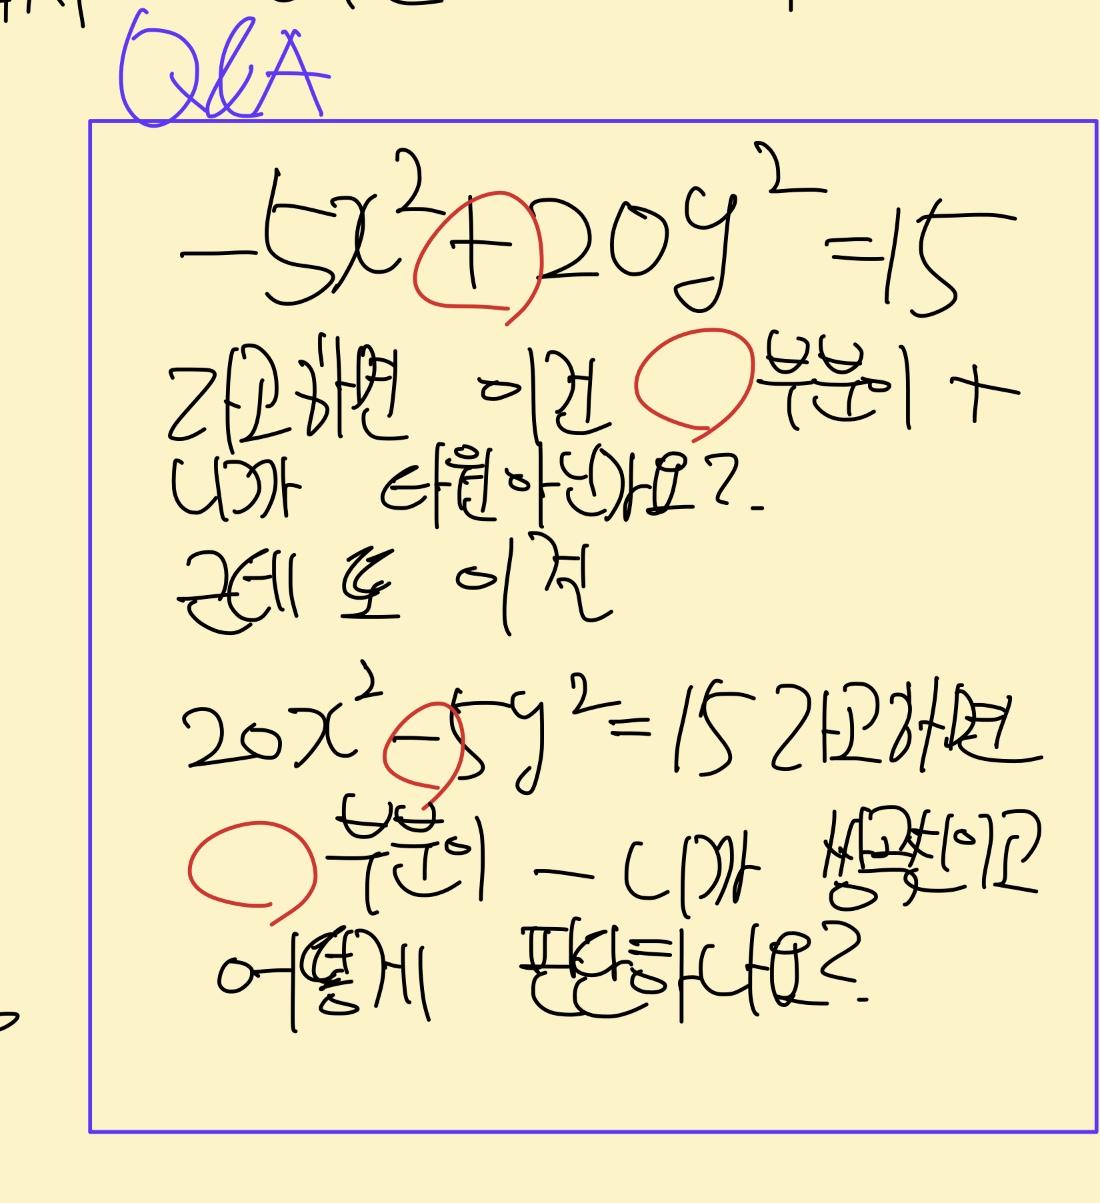 Q&A
-5x²+20y²=15
라고하면 이건 ○ 부분이 +
니까 타원아닌가요?
근데 또 이건
20x²-5y²=15 라고하면
○ 부분이 - 니까 쌍곡선이고
어떻게 판단하나요?